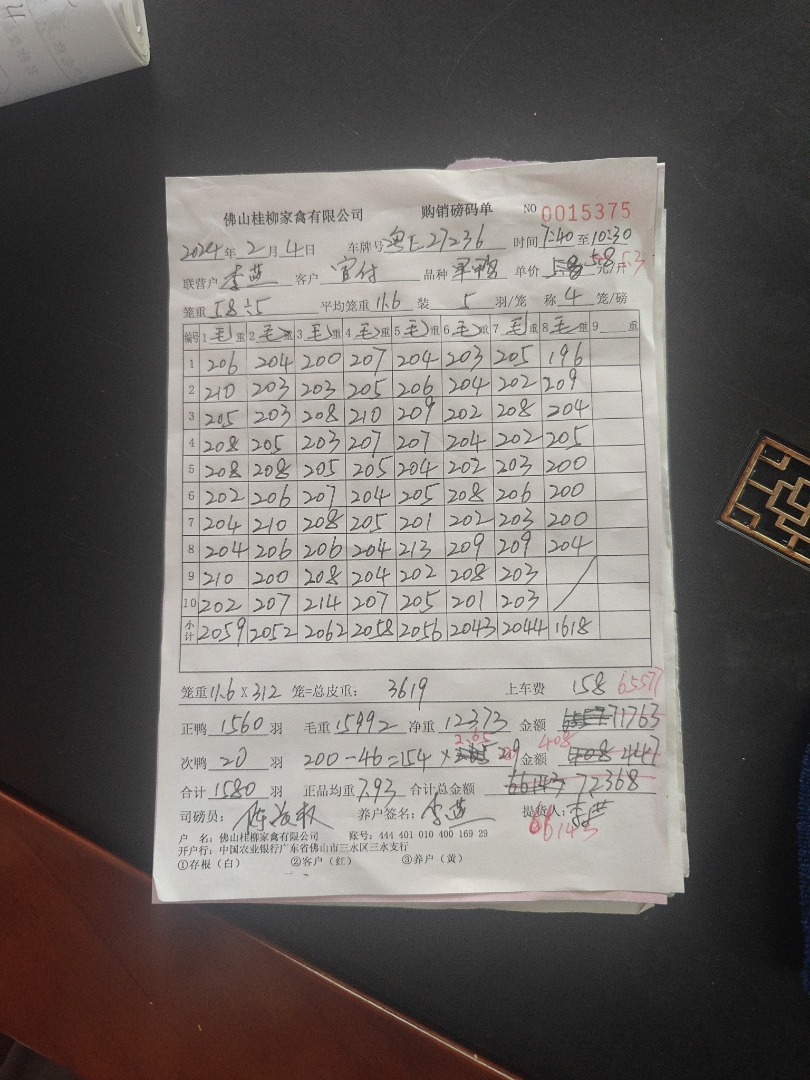 佛山桂柳家禽有限公司 购销磅码单 NO 0015375
2024年2月4日 车牌号 粤E.27236 时间 7:40至10:30
联营户 李燕 客户 官付 品种 单价 5.8 元/斤 5.3
笼重 58÷5 平均笼重 11.6 装 5 羽/笼 称 4 笼/磅
编号 1毛重 2毛重 3毛重 4毛重 5毛重 6毛重 7毛重 8毛重 9 重
1 206 204 200 207 204 203 205 196
2 210 203 203 205 206 204 202 209
3 205 203 208 210 209 202 208 204
4 208 205 203 207 207 204 202 205
5 208 208 205 205 204 202 203 200
6 202 206 207 204 205 208 206 200
7 204 210 208 205 201 202 203 200
8 204 206 206 204 213 209 209 204
9 210 200 208 204 202 208 203
10 202 207 214 207 205 201 203
小计 2059 2052 2062 2058 2056 2043 2044 1618
笼重 11.6 X 312 笼=总皮重: 3619 上车费 158 65577
正鸭 1560 羽 毛重 15992 净重 12373 金额 71763
2.65 408
次鸭 20 羽 200-46=154 × 2.9 金额 447
合计 1580 羽 正品均重 7.93 合计总金额 66143 72368
司磅员: 养户签名: 李燕 提货人: 李燕
66143
户 名: 佛山桂柳家禽有限公司 账号: 444 401 010 400 169 29
开户行: 中国农业银行广东省佛山市三水区三水支行
①存根(白) ②客户(红) ③养户(黄)